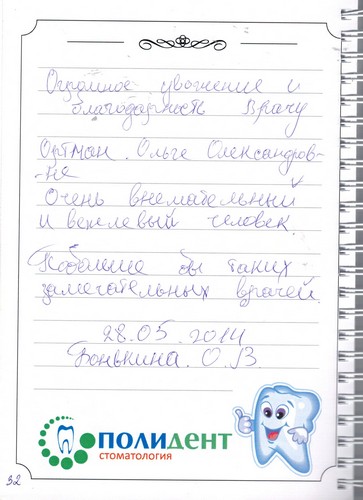 Огромное уважение и
благодарность Врачу
Ортман. Ольге Олександров-
-не
Очень внемательный
и вежлевый человек.
Побольше бы таких
замечательных врачей.
28.05.2014
Бонькина. О.В.
ПОЛИДЕНТ
СТОМАТОЛОГИЯ
32